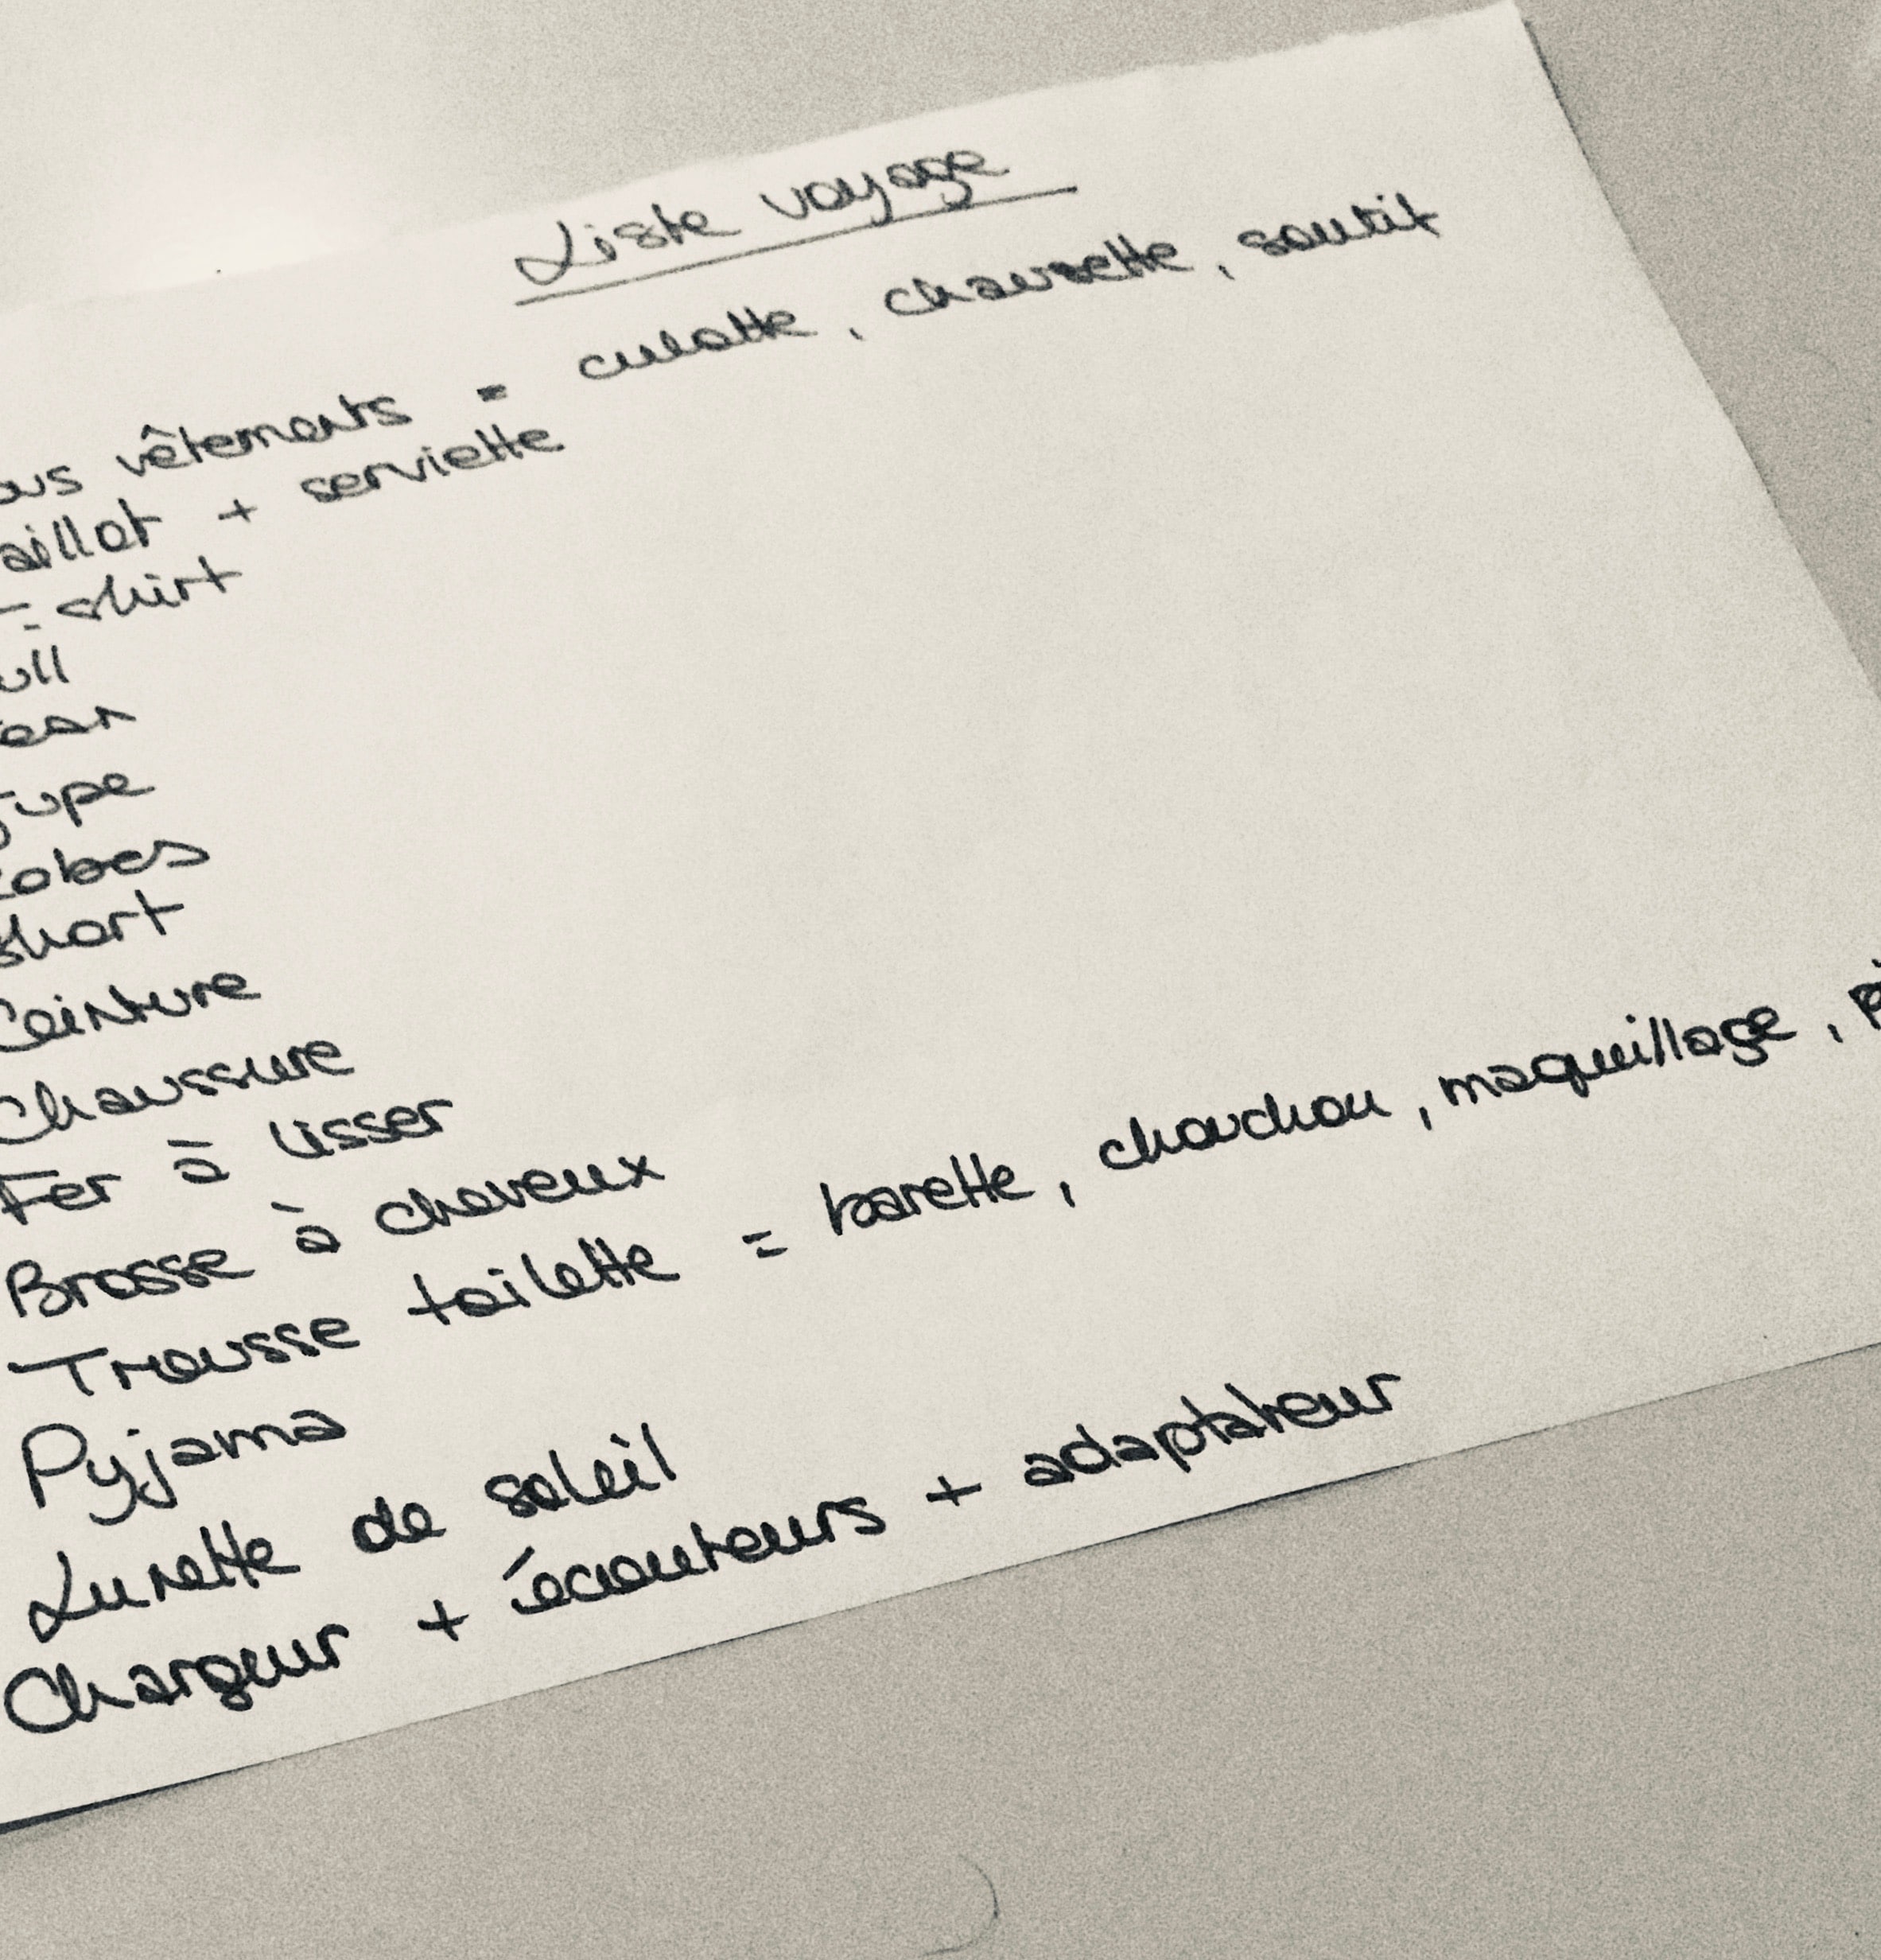 Liste voyage
ous vêtements = culotte, chaussette, soutif
aillot + serviette
T-shirt
ull
ean
Jupe
Robes
Short
Ceinture
Chaussure
Fer à lisser
Brosse à cheveux
Trousse toilette = barette, chouchou, maquillage,
Pyjama
Lunette de soleil
Chargeur + écouteurs + adaptateur